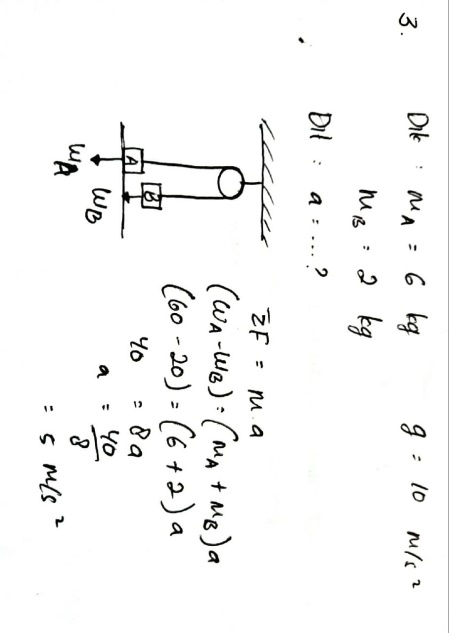 3. Dik : mA = 6 kg g = 10 m/s²
mB = 2 kg
Dit : a = ....?
A
B
WA
WB
ΣF = m.a
(WA - WB) = (mA + mB)a
(60 - 20) = (6 + 2)a
40 = 8a
a = 40/8
= 5 m/s²